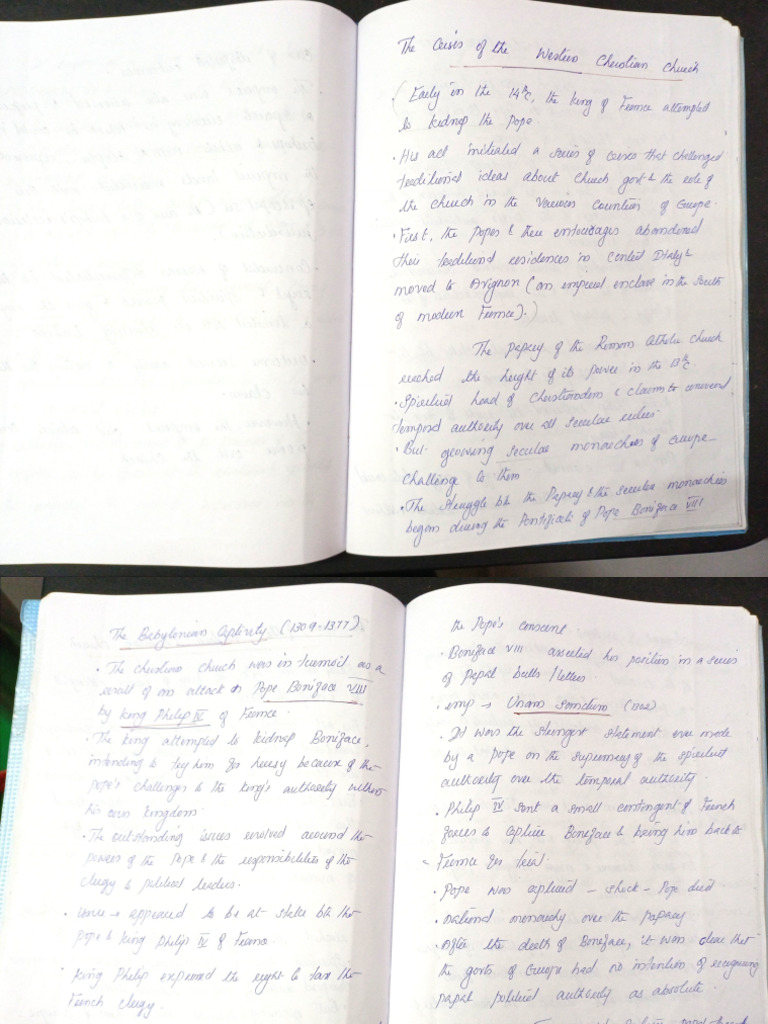 The Crisis of the Western Christian Church
(Early in the 14th C, the king of France attempted
to kidnap the Pope.
• His act initiated a series of crises that challenged
traditional ideas about church govt & the role of
the church in the various countries of Europe.
• First, the popes & their entourages abandoned
their traditional residences in central Italy &
moved to Avignon (an imperial enclave in the south
of modern France).)
The papacy of the Roman Catholic church
reached the height of its power in the 13th C.
• Spiritual head of Christendom & claims to universal
temporal authority over all secular rulers.
• But growing secular monarchies of Europe -
challenge to them
• The struggle b/n the Papacy & the secular monarchies
began during the Pontificate of Pope Boniface VIII
The Babylonian Captivity (1309-1377)
• The christian church was in turmoil as a
result of an attack on Pope Boniface VIII
by King Philip IV of France.
• The king attempted to kidnap Boniface,
intending to try him for heresy because of the
pope's challenges to the king's authority within
his own kingdom.
• The outstanding issues evolved around the
powers of the Pope & the responsibilities of the
clergy to political leaders.
• Issue → appeared to be at stake b/n the
Pope & King Philip IV of France.
• King Philip expressed the right to tax the
French clergy.
the Pope's consent
• Boniface VIII asserted his position in a series
of Papal bulls / letters
• imp → Unam Sanctum (1302)
• It was the strongest statement ever made
by a pope on the supremacy of the spiritual
authority over the temporal authority.
• Philip IV sent a small contingent of French
forces to capture Boniface & bring him back to
France for trial.
• Pope was captured - shock - Pope died
• national monarchy over the papacy
• After the death of Boniface, it was clear that
the govts of Europe had no intention of recognising
papal political authority as absolute.